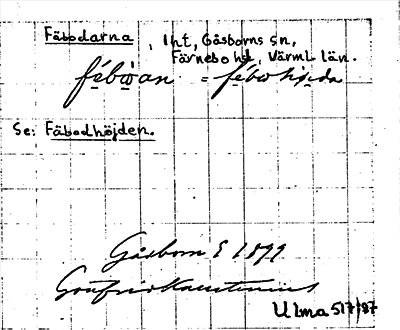 Fäbodarna, lht, Gåsborns sn,
Färnebo hd, Värml. län.
fébωan = fébωhöjda
Se: Fäbodhöjden.
Gåsborn S 1899
Gottfrid Kallstenius
Ulma 517:87